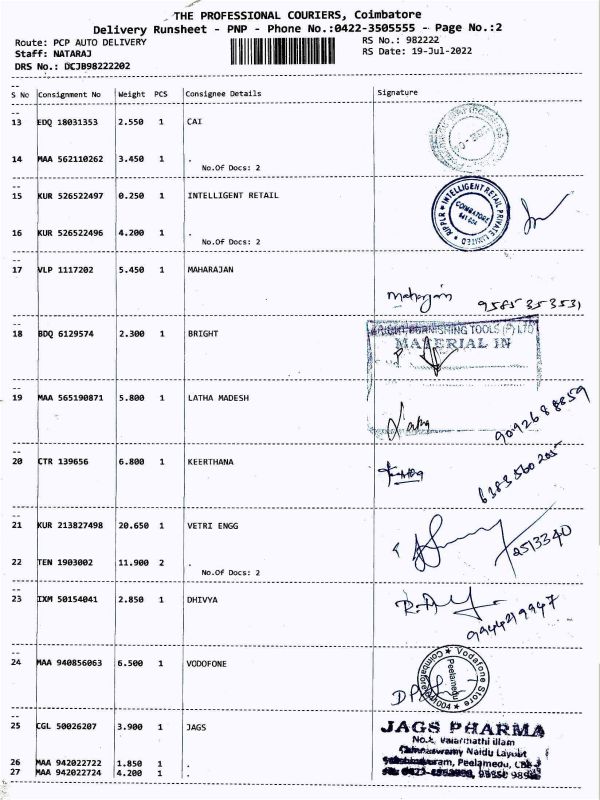 THE PROFESSIONAL COURIERS, Coimbatore
Delivery Runsheet - PNP - Phone No.:0422-3505555 - Page No.:2
Route: PCP AUTO DELIVERY RS No.: 982222
Staff: NATARAJ RS Date: 19-Jul-2022
DRS No.: DCJB98222202
S No Consignment No Weight PCS Consignee Details Signature
13 EDQ 18031353 2.550 1 CAI
14 MAA 562110262 3.450 1 .
No.Of Docs: 2
15 KUR 526522497 0.250 1 INTELLIGENT RETAIL
RIPPLR * INTELLIGENT RETAIL PRIVATE LIMITED *
COIMBATORE
641 024
16 KUR 526522496 4.200 1 .
No.Of Docs: 2
17 VLP 1117202 5.450 1 MAHARAJAN
Maharajan 9585353531
18 BDQ 6129574 2.300 1 BRIGHT
BRIGHT BURNISHING TOOLS (P) LTD
MATERIAL IN
19 MAA 565190871 5.800 1 LATHA MADESH
Latha 9092688859
20 CTR 139656 6.800 1 KEERTHANA
6383560205
21 KUR 213827498 20.650 1 VETRI ENGG
2513340
22 TEN 1903002 11.900 2 .
No.Of Docs: 2
23 IXM 50154041 2.850 1 DHIVYA
9944219947
24 MAA 940856063 6.500 1 VODOFONE
Vodafone Store
Peelamedu
Coimbatore
25 CGL 50026207 3.900 1 JAGS
JAGS PHARMA
Valarmathi illam
Chinnaswamy Naidu Layout
Peelamedu,
26 MAA 942022722 1.850 1 .
27 MAA 942022724 4.200 1 .